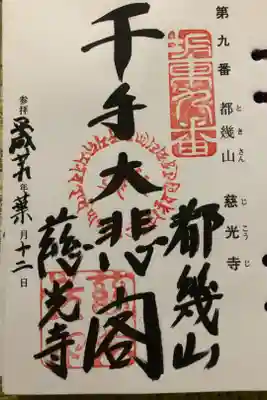 第九番 都幾山 慈光寺
とき さん じ こう じ
坂東九番
都幾山
千手大悲閣
慈光寺
参拝 平成 年 葉月十二日